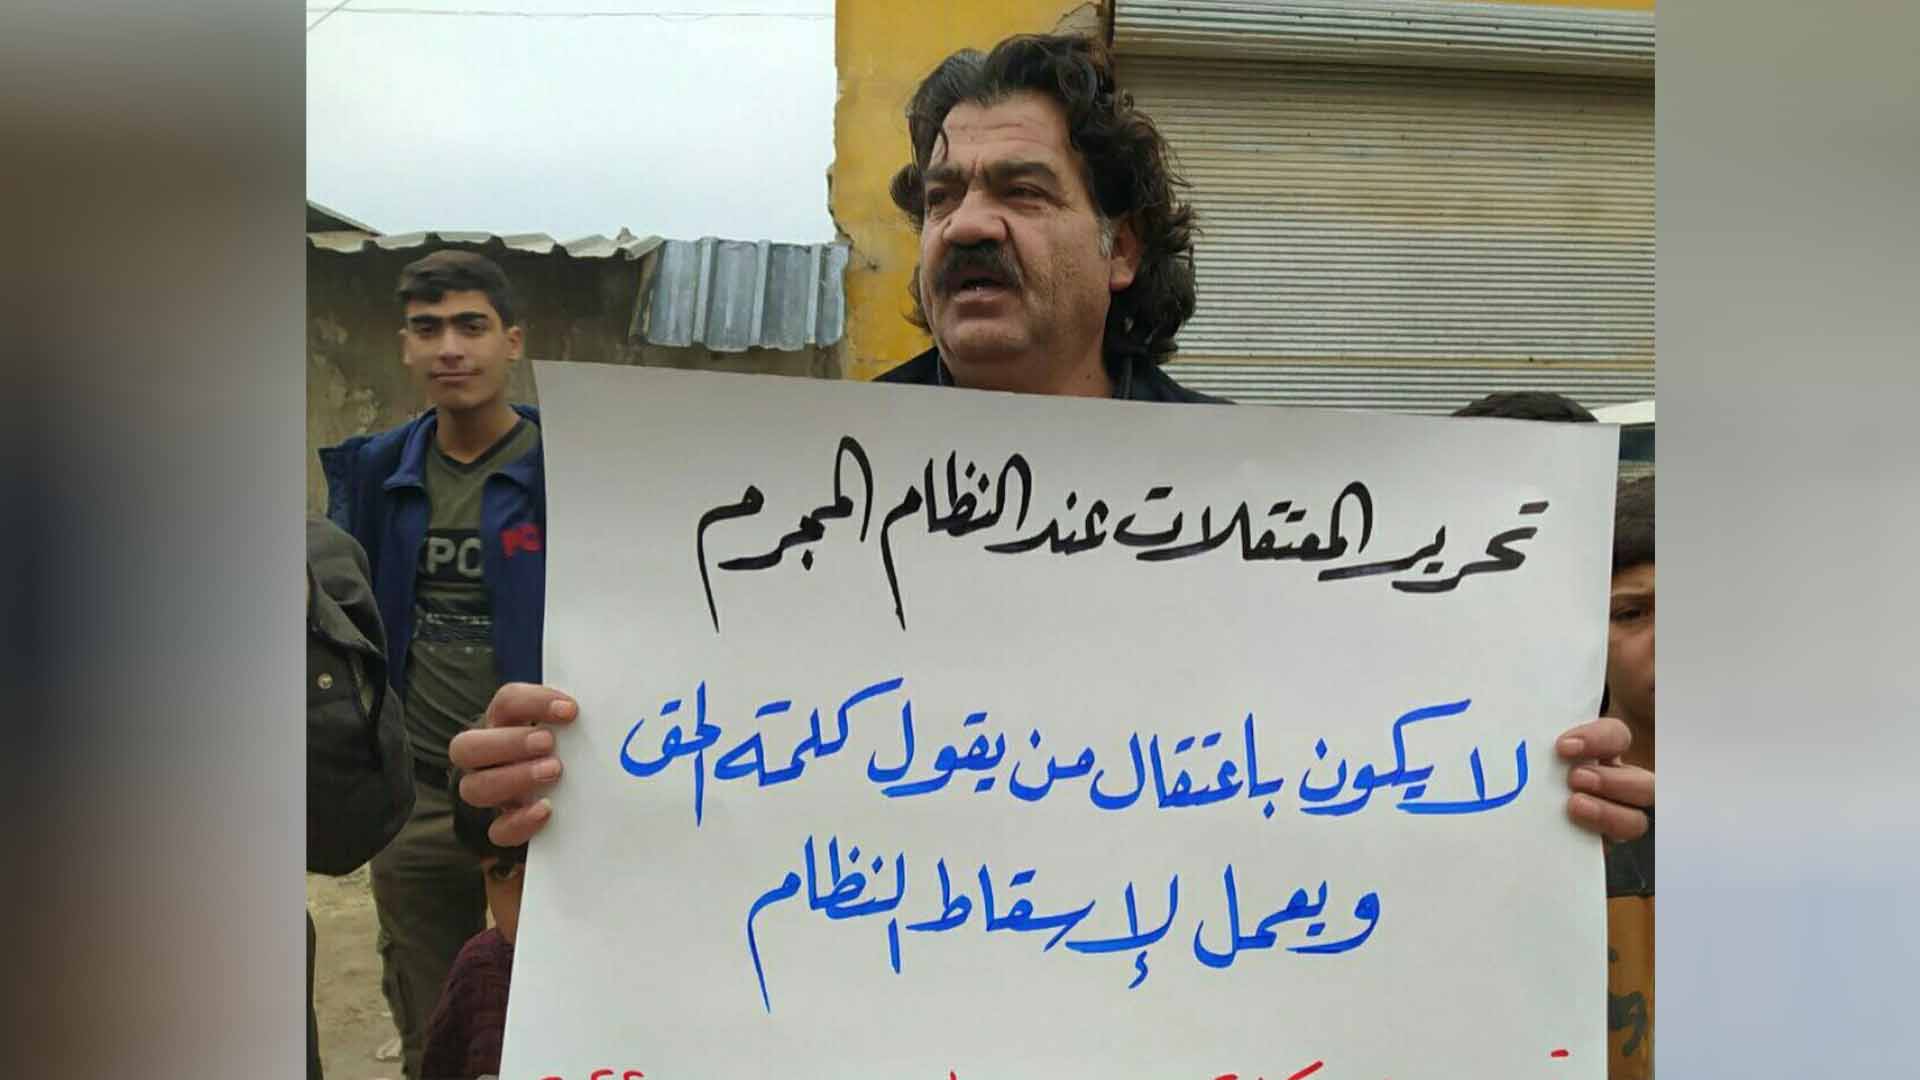 تحرير المعتقلات عند النظام المجرم
لا يكون باعتقال من يقول كلمة الحق
ويعمل لإسقاط النظام